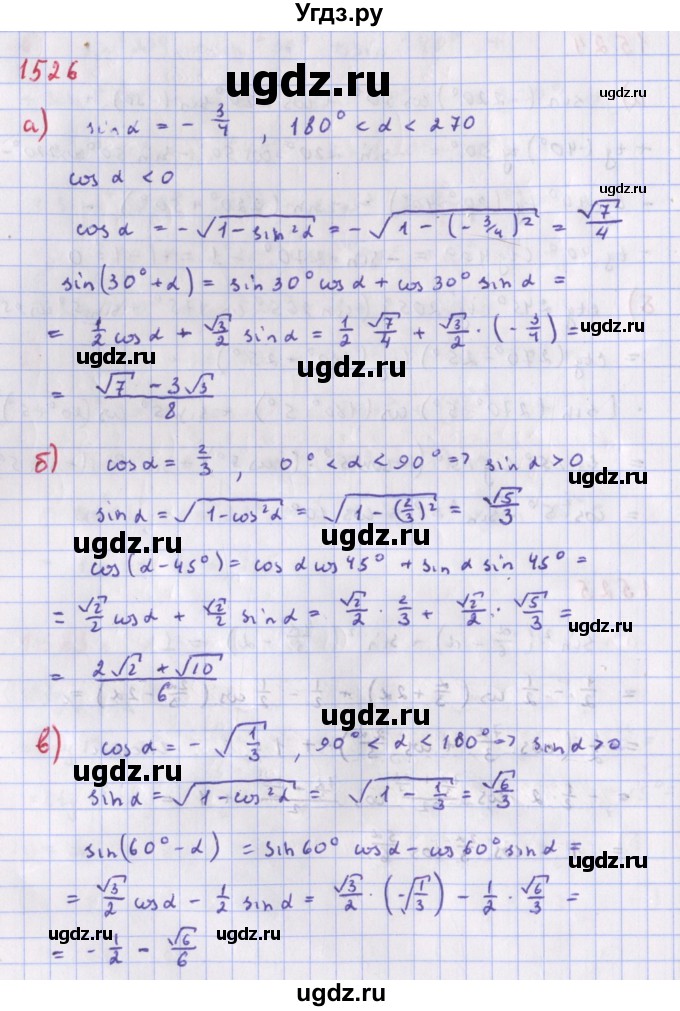 Угдз.ру
1526
ugdz.ru
ugdz.ru
а) sin α = - 3/4 , 180° < α < 270
cos α < 0
ugdz.ru
cos α = -√(1 - sin²α) = -√(1 - (-3/4)²) = √7/4
ugdz.ru
sin(30° + α) = sin 30° cos α + cos 30° sin α =
ugdz.ru
= 1/2 cos α + √3/2 sin α = 1/2 √7/4 + √3/2 · (-3/4) =
ugdz.ru
= (√7 - 3√3)/8
б) cos α = 2/3 , 0° < α < 90° => sin α > 0
ugdz.ru
sin α = √(1 - cos²α) = √(1 - (2/3)²) = √5/3
ugdz.ru
cos(α - 45°) = cos α cos 45° + sin α sin 45° =
= √2/2 cos α + √2/2 sin α = √2/2 · 2/3 + √2/2 · √5/3 =
ugdz.ru
= (2√2 + √10)/6
ugdz.ru
в) cos α = - √(1/3) , 90° < α < 180° => sin α > 0
ugdz.ru
sin α = √(1 - cos²α) = √(1 - 1/3) = √6/3
sin(60° - α) = sin 60° cos α - cos 60° sin α =
ugdz.ru
= √3/2 cos α - 1/2 sin α = √3/2 · (-√(1/3)) - 1/2 · √6/3 =
= - 1/2 - √6/6
ugdz.ru
ugdz.ru
ugdz.ru